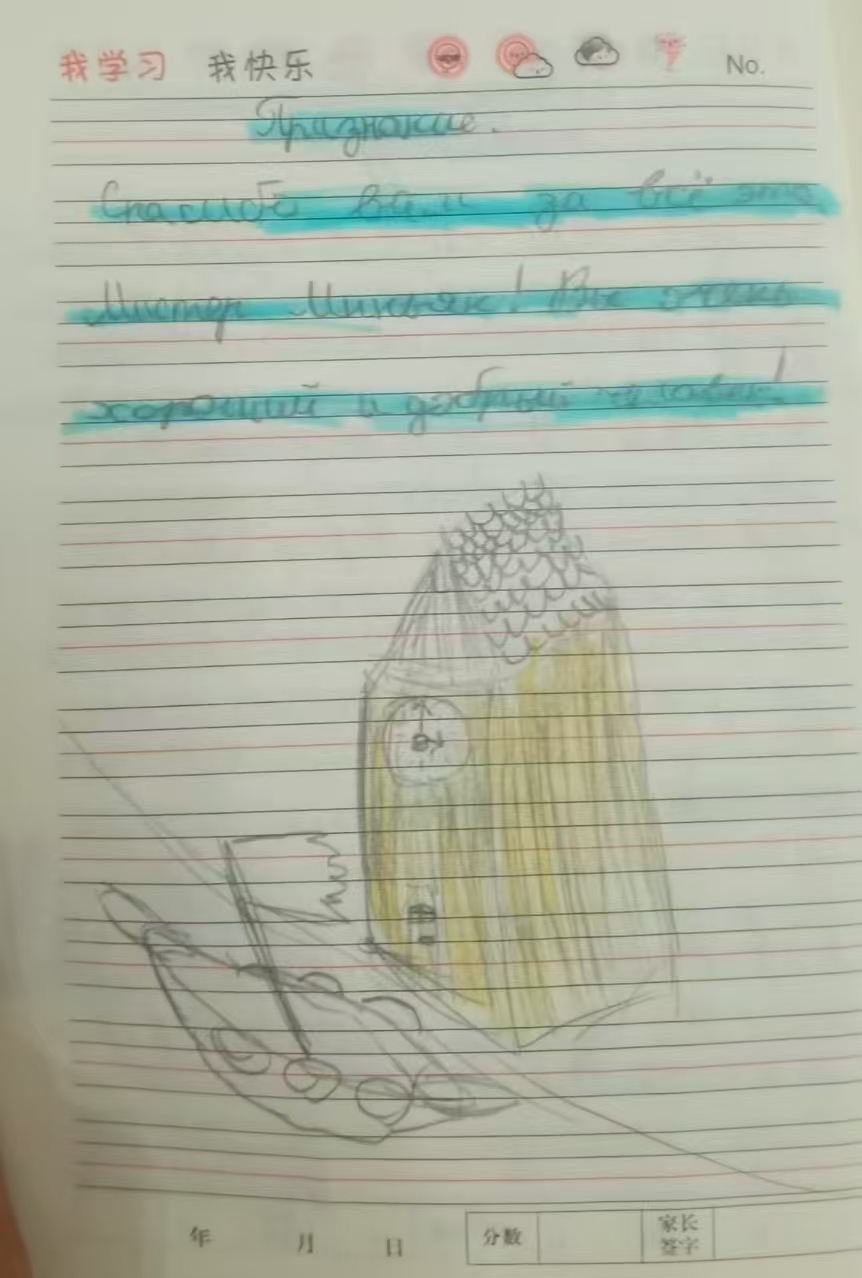 我学习 我快乐 No.
Признание.
Спасибо вам за всё это
Мистер Миньяк! Вы очень
хороший и добрый человек!
年 月 日 分数 家长签字